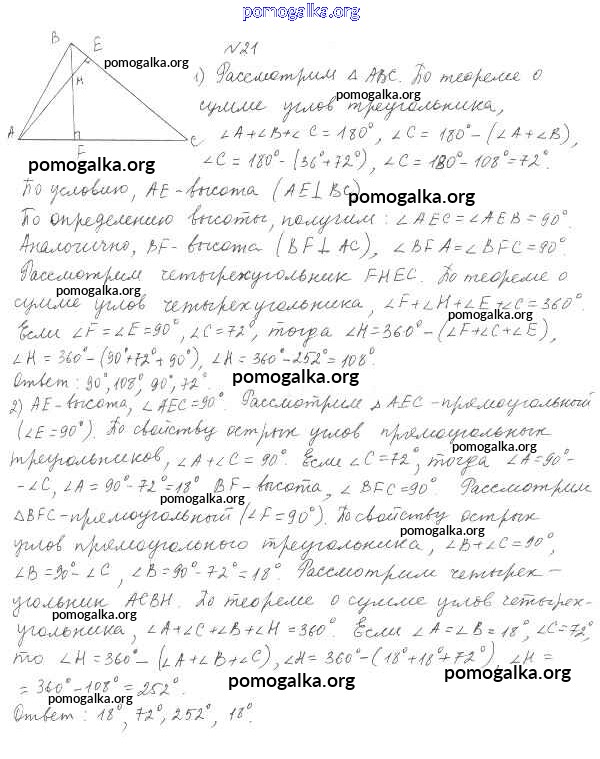 pomogalka.org
№21
B E
pomogalka.org
1) Рассмотрим △ ABC. По теореме о
H
сумме углов треугольника,
pomogalka.org
∠A+∠B+∠C=180°, ∠C=180°-(∠A+∠B),
A F C
∠C=180°-(36°+72°), ∠C=180°-108°=72°.
pomogalka.org
По условию, AE-высота (AE⊥BC)
pomogalka.org
По определению высоты, получим: ∠AEC=∠AEB=90°.
Аналогично, BF-высота (BF⊥AC), ∠BFA=∠BFC=90°.
pomogalka.org
Рассмотрим четырехугольник FHEC. По теореме о
pomogalka.org
сумме углов четырехугольника, ∠F+∠H+∠E+∠C=360°
pomogalka.org
Если ∠F=∠E=90°, ∠C=72°, тогда ∠H=360°-(∠F+∠C+∠E),
∠H=360°-(90°+72°+90°), ∠H=360°-252°=108°.
Ответ: 90°, 108°, 90°, 72°.
pomogalka.org
2) AE-высота, ∠AEC=90°. Рассмотрим △AEC-прямоугольный
(∠E=90°). По свойству острых углов прямоугольных
pomogalka.org
треугольников, ∠A+∠C=90°. Если ∠C=72°, тогда ∠A=90°-
-∠C, ∠A=90°-72°=18° BF-высота, ∠BFC=90° Рассмотрим
pomogalka.org
△BFC-прямоугольный (∠F=90°). По свойству острых
pomogalka.org
углов прямоугольного треугольника, ∠B+∠C=90°,
∠B=90°-∠C, ∠B=90°-72°=18°. Рассмотрим четырех-
угольник ACBH. По теореме о сумме углов четырех-
pomogalka.org
угольника, ∠A+∠C+∠B+∠H=360°. Если ∠A=∠B=18°, ∠C=72°,
то ∠H=360°-(∠A+∠B+∠C), ∠H=360°-(18°+18°+72°), ∠H=
pomogalka.org
pomogalka.org
=360°-108°=252°.
pomogalka.org
Ответ: 18°, 72°, 252°, 18°.